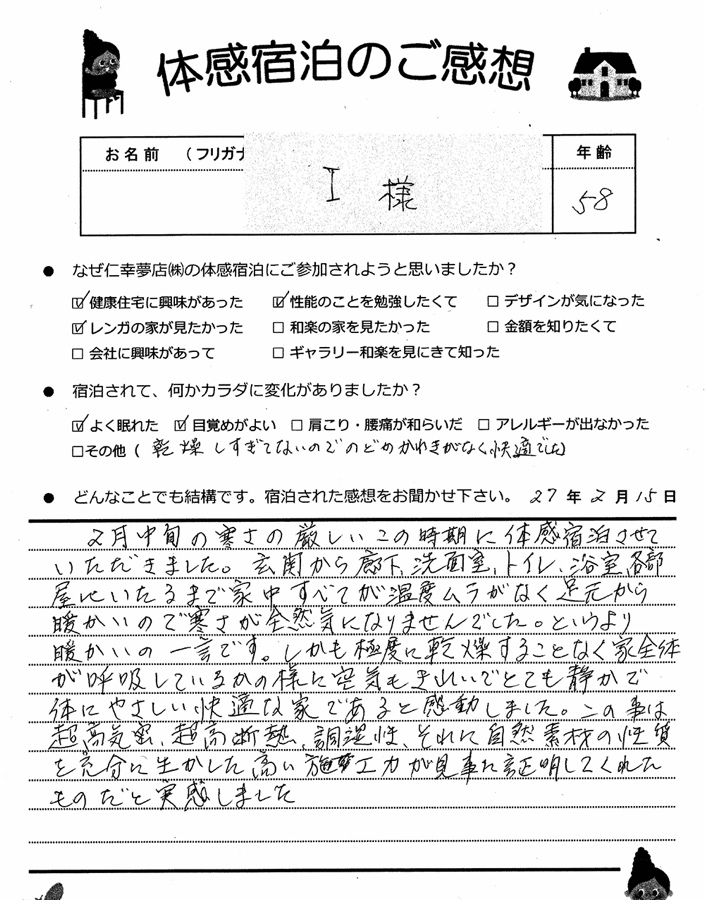 体感宿泊のご感想
お名前 （フリガナ
年齢
I 様
58
● なぜ仁幸夢店㈱の体感宿泊にご参加されようと思いましたか？
☑ 健康住宅に興味があった ☑ 性能のことを勉強したくて □ デザインが気になった
☑ レンガの家が見たかった □ 和楽の家を見たかった □ 金額を知りたくて
□ 会社に興味があって □ ギャラリー和楽を見にきて知った
● 宿泊されて、何かカラダに変化がありましたか？
☑ よく眠れた ☑ 目覚めがよい □ 肩こり・腰痛が和らいだ □ アレルギーが出なかった
□その他（ 乾燥しすぎてないのでのどのかわきがなく快適でした）
● どんなことでも結構です。宿泊された感想をお聞かせ下さい。 27 年 2 月 15 日
2月中旬の寒さの厳しいこの時期に体感宿泊させて
いただきました。玄関から廊下、洗面室、トイレ、浴室、各部
屋にいたるまで家中すべてが温度ムラがなく足元から
暖かいので寒さが全然気になりませんでした。というより
暖かいの一言です。しかも極度に乾燥することなく家全体
が呼吸しているかの様に空気もきれいでとても静かで
体にやさしい快適な家であると感動しました。この事は
超高気密、超高断熱、調湿性、それに自然素材の性質
を充分に生かした高い施工力が見事に証明してくれた
ものだと実感しました